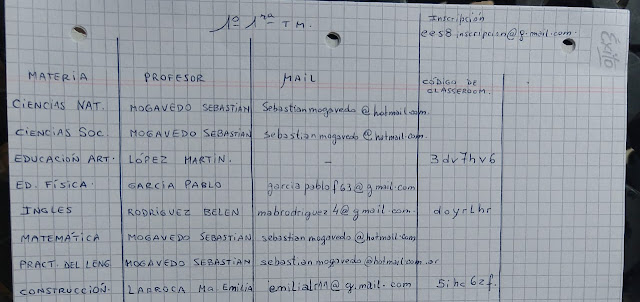 1º 1ra T M.
Inscripción
ees8inscripcion@gmail.com.
Éxito
MATERIA PROFESOR MAIL CÓDIGO DE CLASSROOM.
CIENCIAS NAT. MOGAVEDO SEBASTIAN sebastianmogavedo@hotmail.com.
CIENCIAS SOC. MOGAVEDO SEBASTIAN sebastianmogavedo@hotmail.com.
EDUCACION ART. LÓPEZ MARTIN. - 3dv7hv6
ED. FÍSICA. GARCIA PABLO garciapablof63@gmail.com
INGLES RODRIGUEZ BELEN mabrodriguez4@gmail.com. doyrlhr
MATEMÁTICA MOGAVEDO SEBASTIAN sebastianmogavedo@hotmail.com
PRACT. DEL LENG MOGAVEDO SEBASTIAN sebastianmogavedo@hotmail.com.ar
CONSTRUCCIÓN. LARROCA Ma EMILIA emilialr11@gmail.com 5ihc6zf.